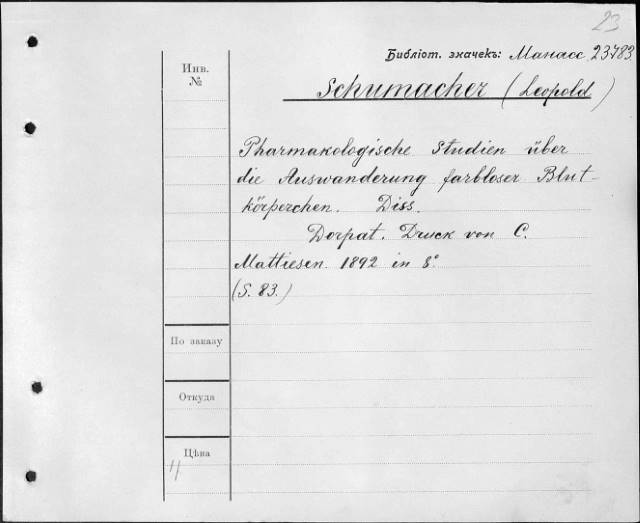 23
Библіот. значекъ: Манасс 23783
Инв.
№
Schumacher (Leopold)
Pharmakologische Studien über
die Auswanderung farbloser Blut-
körperchen. Diss.
Dorpat. Druck von C.
Mattiesen. 1892 in 8°
(S. 83.)
По заказу
Откуда
Цѣна